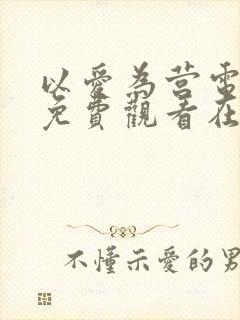 以愛為营電
免費觀看在
不懂示愛的男